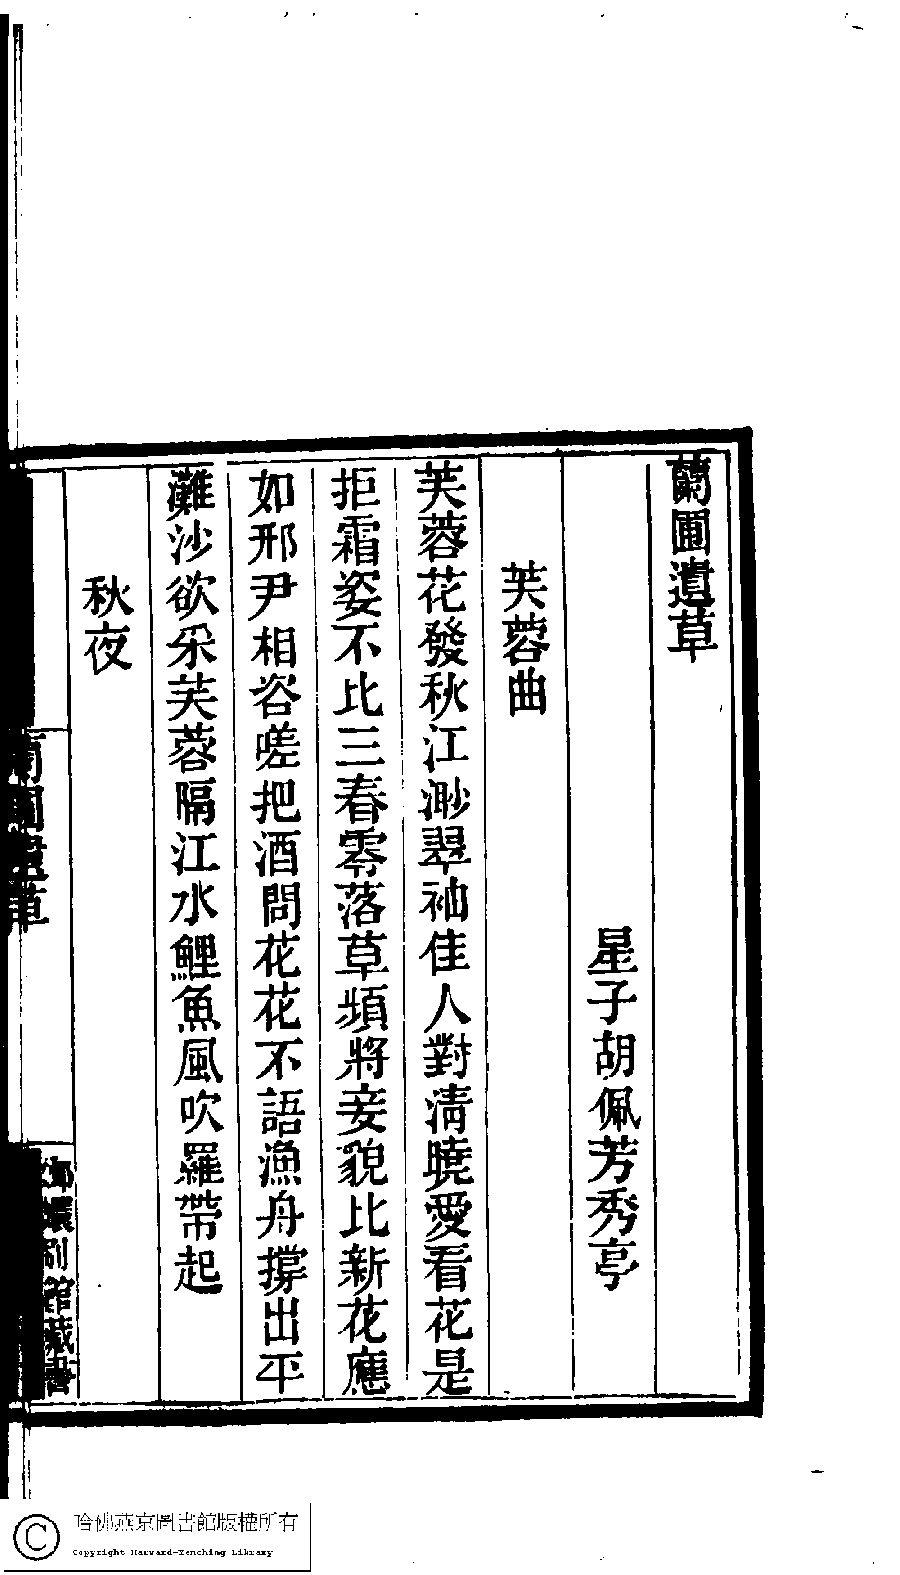 蘭圃遺草
星子胡佩芳秀亭
芙蓉曲
芙蓉花發秋江渺翠袖佳人對清曉愛看花是
拒霜姿不比三春零落草頻將妾貌比新花應
如邢尹相咨嗟把酒問花花不語漁舟撐出平
灘沙欲采芙蓉隔江水鯉魚風吹羅帶起
秋夜
蘭圃遺草
嬛別館藏書
哈佛燕京圖書館版權所有
Copyright Harvard-Yenching Library